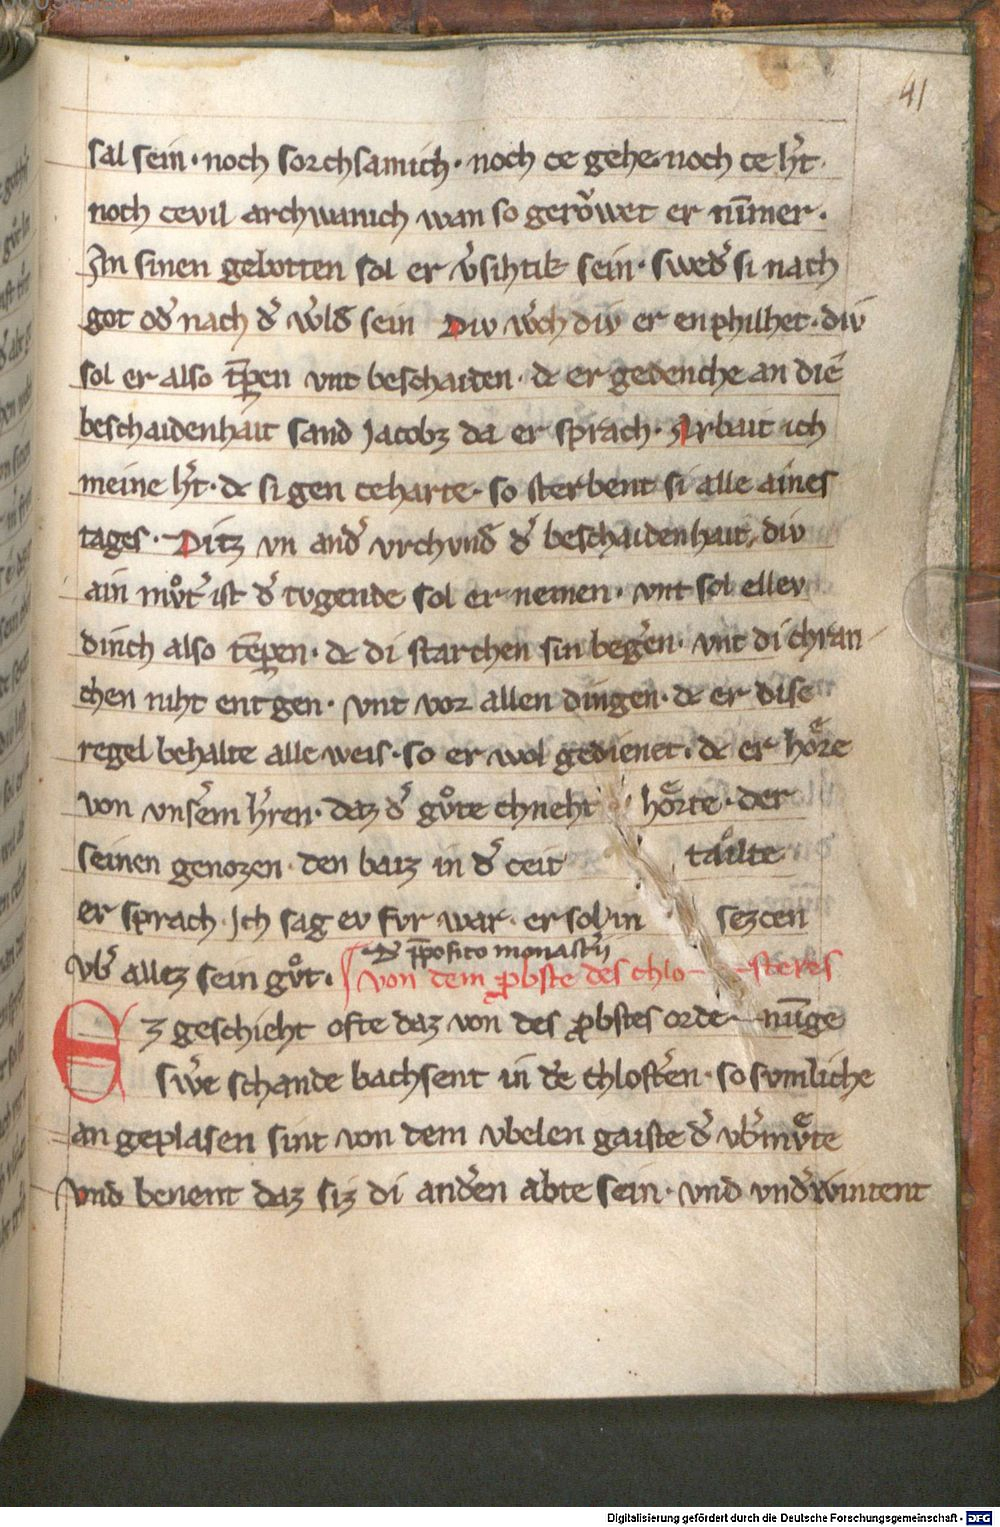 41
sal sein · noch sorchsamich · noch ce gehe · noch ce h̾t ·
noch cevil archwanich wan so gerv̊wet er nim̄er ·
In sinen gebotten sol er v̾sihtik sein · swed̾ si nach
got od̾ nach d̾ w̾ld̾ sein Div w̾ch div er enphilhet · div
sol er also tp̄en vnt beschaiden · dc er gedenche an die
beschaidenhait sand Jacobz da er sprach · Arbait ich
meine h̾t · dc si gen ceharte · so sterbent si alle aines
tages · Ditz vn and̾ vrchvnd̾ d̾ beschaidenhait, div
ain mv̊t̾ ist d̾ tvgende sol er nemen · vnt sol ellev
dinch also te̅pen · dc di starchen sin beg̾en · vnt di chran
chen niht entgen · vnt vor allen dingen · dc er dise
regel behalte alle weis · so er wol gedienet · dc er hoͤre
von vns̾em h̾ren · daz d̾ gv̊te chneht hoͤrte · der
seinen genozen · den baiz in d̾ ceit tailte
er sprach · Ich sag ev fvr war · er sol in sezcen
vb̾ allez sein gv̊t ·
D̾ p̄posito monast̾ij
von dem p̱bste des chlo- -steres
Ez geschieht ofte daz von des p̱bstes orde- nūge
sw̾e schande bachsent in d̾e chlost̾en · so svmliche
an geplasen sint von dem vbelen gaiste d̾ vb̾mvͤte
vnd benent daz siz di and̾en abte sein · vnd vnd̾wintent
Digitalisierung gefördert durch die Deutsche Forschungsgemeinschaft - DFG